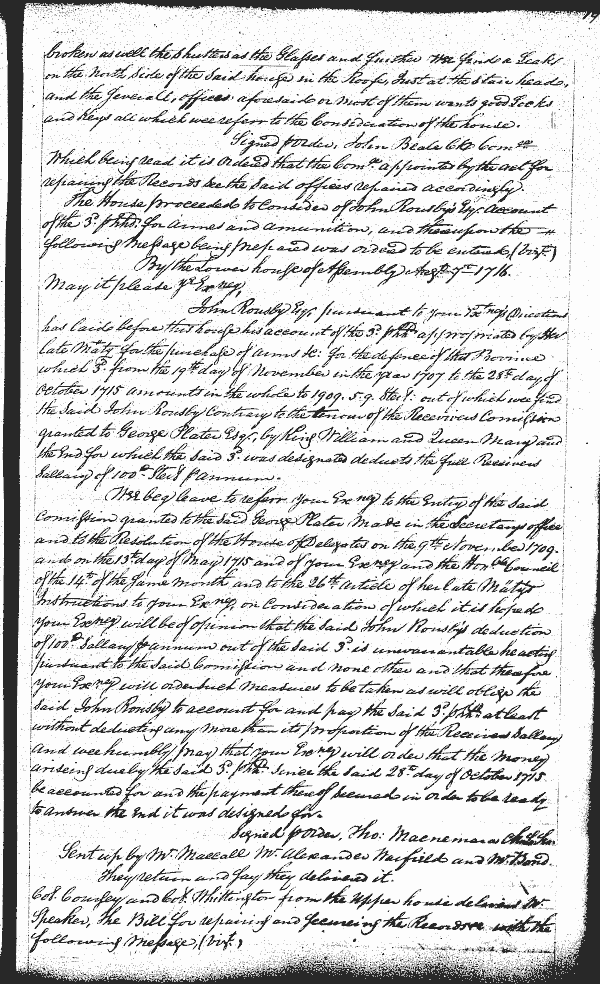 broken as well the Shutters as the Glasses and further wee find a Leake
on the North Side of the said house in the Roofe, Just at the Stair head,
and the severall offices aforesaid or most of them wants good Locks
and Keys all which wee referr to the Consideration of the house.
Signed p order, John Beale Clk Com:ee
Which being read it is Ordered that the Com:ee appointed by the act for
repairing the Records see the said offices repaired accordingly.
The House proceeded to Consider of John Rousby's Esq: Account
of the 3:d p hhd: for Armes and Amunition, and thereupon the
following Message being prepared was ordered to be entered, (Vizt.)
By the Lower house of Assembly Aug:st 7:th 1716.
May it please y:r Ex:ncy,
John Rousby Esq: pursuant to your Ex:ncy's Directions
has laid before this house his account of the 3:d p hhd appropriated by Her
late Ma:ty for the purchase of arms &c: for the defence of this Province
which 3:d from the 19:th day of November in the year 1707 to the 28:th day of
October 1715 amounts in the whole to 1909.5.9. Sterl: out of which wee find
the said John Rousby Contrary to the tenour of the Receivers Comission
granted to George Plater Esq:, by King William and Queen Mary and
the End for which the Said 3:d was designated deducts the full Receivers
Sallary of 100:£ Sterl p annum.
Wee beg leave to referr your Ex:ncy to the Entry of the Said
Comission granted to the Said George Plater Made in the Secretarys office
and to the Resolution of the House of Delegates on the 9:th November 1709.
and on the 13:th day of May 1715 and of your Ex:ncy and the Hon:ble Councill
of the 14:th of the same month and to the 26:th article of her Late Ma:tys
Instructions to your Ex:ncy, on Consideration of which it is hoped
your Ex:ncy will be of opinion that the said John Rousby's deduction
of 100:£ Sallary p annum out of the Said 3:d is unwarrantable he acting
pursuant to the said Comission and none other and that therefore
your Ex:ncy will order such Measures to be taken as will oblige the
said John Rousby to account for and pay the said 3:d p hhd: at least
without deducting any more than its proportion of the Receivers Sallary
And wee humbly pray that your Ex:ncy will order that the money
ariseing due by the said 3:d p hhd: Since the said 28:th day of October 1715
be accounted for and the payment thereof secured in order to be ready
to answer the End it was designed for.
Signed p Order, Tho: Macnemara
Sent up by M:r Maccall M:r Alexander Warfield and M:r Bond.
They return and Say they delivered it.
Col: Coursey and Col: Whittington from the Upper house delivers M:r
Speaker, the Bill for repairing and securing the Records with the
following Message, (Vizt.)